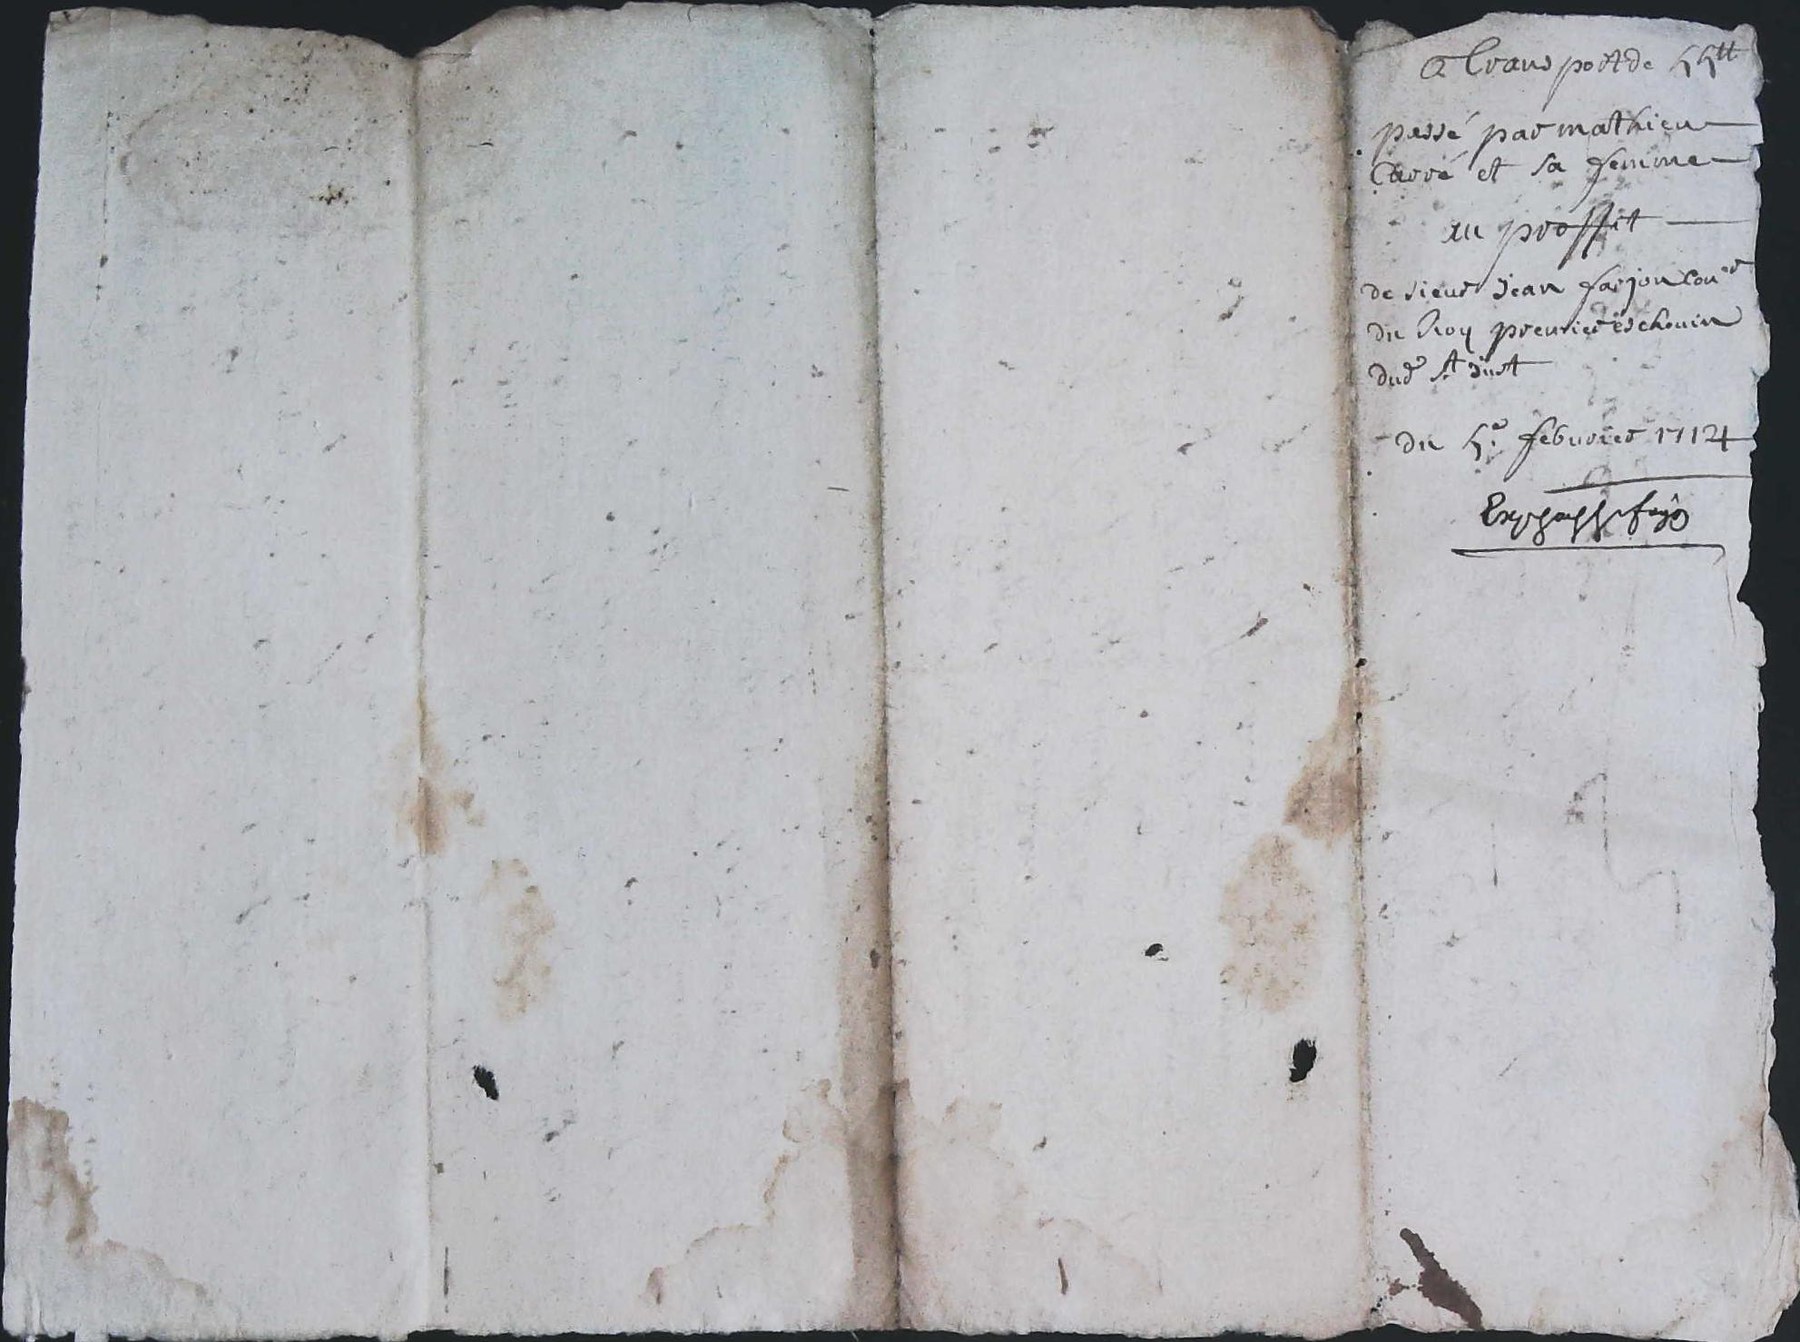 Transport de 55tt
passé par mathieu
Carré et sa femme
au proffit
de sieur Jean farjon Coner
du Roy premier eschevin
dud St Just
du 5e febvrier 1714